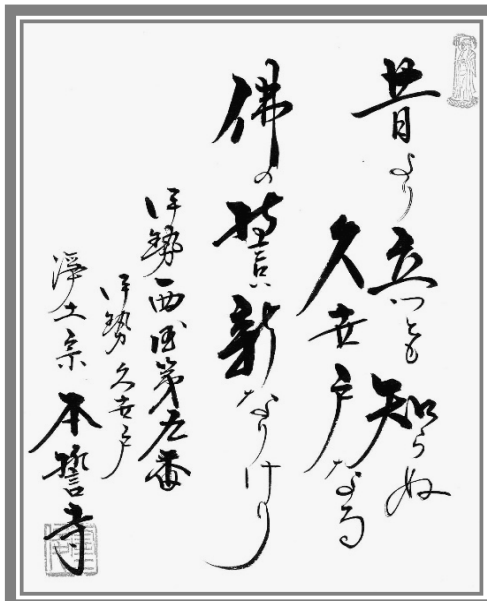 昔より立つとも知らぬ
久世戸なる
佛の誓い新なりけり
伊勢西国第五番
伊勢久世戸
淨土宗 本誓寺